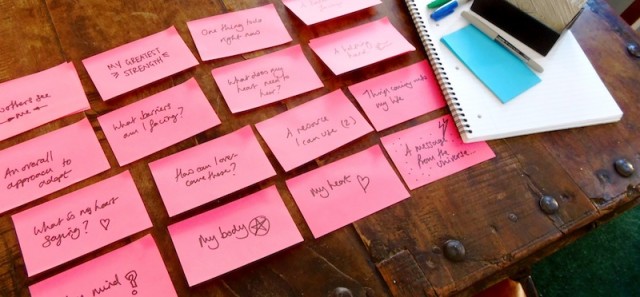 One thing
right now
MY GREATEST
STRENGTH
others see
me
What does my
heart need to
hear?
A helping
What barriers
am I facing?
Things coming into
my life
An overall
approach to
adopt
A resource
I can use (2)
How can I over
come these?
A message
from the
universe...
What is my heart
saying? ♡
my heart ♡
My body
mind ?